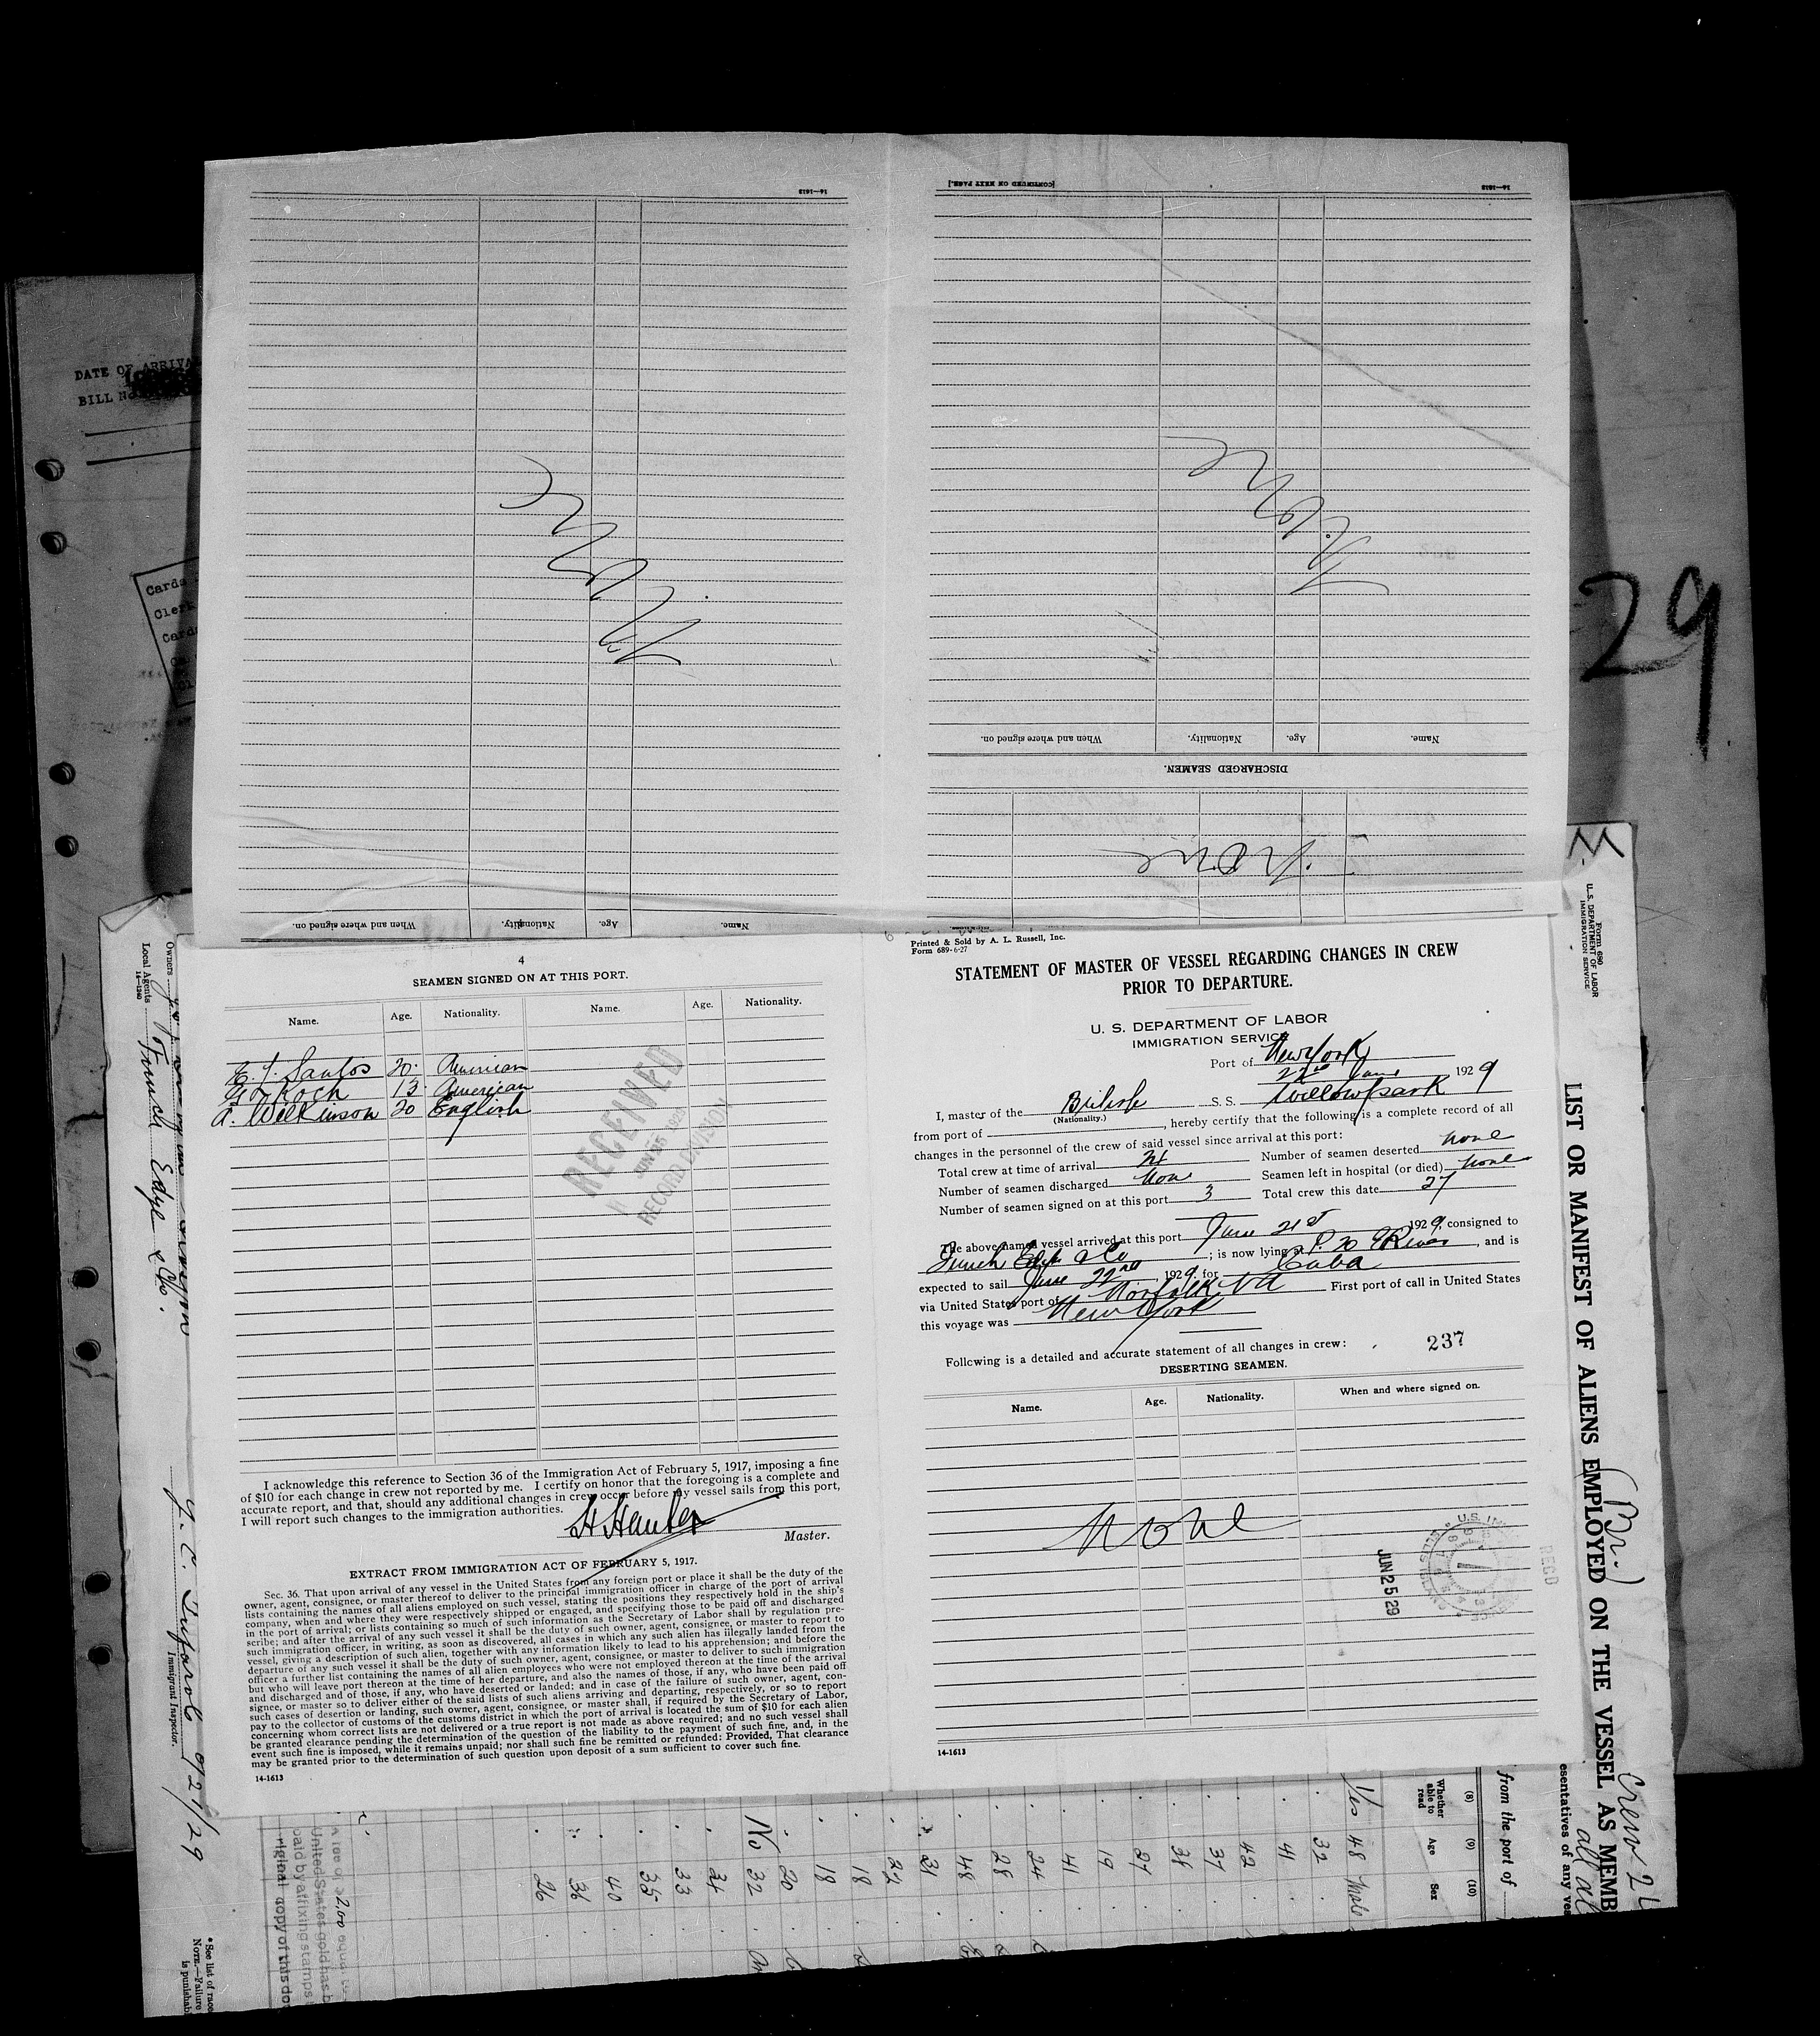 14-1613
[CONTINUED ON NEXT PAGE.]
14-1613
None
None
Name. Age. Nationality. When and where signed on.
DISCHARGED SEAMEN.
None
Name. Age. Nationality. When and where signed on.
DATE OF ARRIVAL
BILL No.
Cards
Clerk
Cards
29
4
SEAMEN SIGNED ON AT THIS PORT.
Name. Age. Nationality. Name. Age. Nationality.
E. J. Santos 20. American
Koch 13. American
A. Wilkinson 20 English
RECEIVED
JUN 25 1929
RECORD DIVISION
I acknowledge this reference to Section 36 of the Immigration Act of February 5, 1917, imposing a fine
of $10 for each change in crew not reported by me. I certify on honor that the foregoing is a complete and
accurate report, and that, should any additional changes in crew occur before my vessel sails from this port,
I will report such changes to the immigration authorities.
H Hunter
Master.
EXTRACT FROM IMMIGRATION ACT OF FEBRUARY 5, 1917.
Sec. 36. That upon arrival of any vessel in the United States from any foreign port or place it shall be the duty of the
owner, agent, consignee, or master thereof to deliver to the principal immigration officer in charge of the port of arrival
lists containing the names of all aliens employed on such vessel, stating the positions they respectively hold in the ship's
company, when and where they were respectively shipped or engaged, and specifying those to be paid off and discharged
in the port of arrival; or lists containing so much of such information as the Secretary of Labor shall by regulation pre-
scribe; and after the arrival of any such vessel it shall be the duty of such owner, agent, consignee, or master to report to
such immigration officer, in writing, as soon as discovered, all cases in which any such alien has illegally landed from the
vessel, giving a description of such alien, together with any information likely to lead to his apprehension; and before the
departure of any such vessel it shall be the duty of such owner, agent, consignee, or master to deliver to such immigration
officer a further list containing the names of all alien employees who were not employed thereon at the time of the arrival
but who will leave port thereon at the time of her departure, and also the names of those, if any, who have been paid off
and discharged and of those, if any, who have deserted or landed; and in case of the failure of such owner, agent, con-
signee, or master so to deliver either of the said lists of such aliens arriving and departing, respectively, or so to report
such cases of desertion or landing, such owner, agent, consignee, or master shall, if required by the Secretary of Labor,
pay to the collector of customs of the customs district in which the port of arrival is located the sum of $10 for each alien
concerning whom correct lists are not delivered or a true report is not made as above required; and no such vessel shall
be granted clearance pending the determination of the question of the liability to the payment of such fine, and, in the
event such fine is imposed, while it remains unpaid; nor shall such fine be remitted or refunded: Provided, That clearance
may be granted prior to the determination of such question upon deposit of a sum sufficient to cover such fine.
14-1613
Printed & Sold by A. L. Russell, Inc.
Form 689-6-27
STATEMENT OF MASTER OF VESSEL REGARDING CHANGES IN CREW
PRIOR TO DEPARTURE.
U. S. DEPARTMENT OF LABOR
IMMIGRATION SERVICE
Port of New York
22nd June 1929
I, master of the British S. S. Willowpark
(Nationality.)
from port of , hereby certify that the following is a complete record of all
changes in the personnel of the crew of said vessel since arrival at this port:
Total crew at time of arrival 24 Number of seamen deserted none
Number of seamen discharged None Seamen left in hospital (or died) none
Number of seamen signed on at this port 3 Total crew this date 27
The above named vessel arrived at this port June 21st 1929, consigned to
Funch Edye & Co ; is now lying at P. 20 E River , and is
expected to sail June 22nd, 1929 for Cuba
via United States port of Norfolk Va First port of call in United States
this voyage was New York
Following is a detailed and accurate statement of all changes in crew:
237
DESERTING SEAMEN.
Name. Age. Nationality. When and where signed on.
None
JUN 25 29
REC'D
14-1613
Owners
Local Agents Funch Edye & Co.
14-1240
Immigrant Inspector.
6/21/29
Form 680
U. S. DEPARTMENT OF LABOR
IMMIGRATION SERVICE
LIST OR MANIFEST OF ALIENS EMPLOYED ON THE VESSEL AS MEMB
(Br.)
esentatives of any ves
from the port of
(8) (9) (10)
Whether able to read Age Sex
Yes 48 Male
32
41
42
37
38
27
19
41
24
28
48
31
22
18
18
20
No 32
34
33
35
40
36
26
United States gold has b
paid by affixing stamps
riginal copy of this do
* See list of race
NOTE.—Failure
is punishab